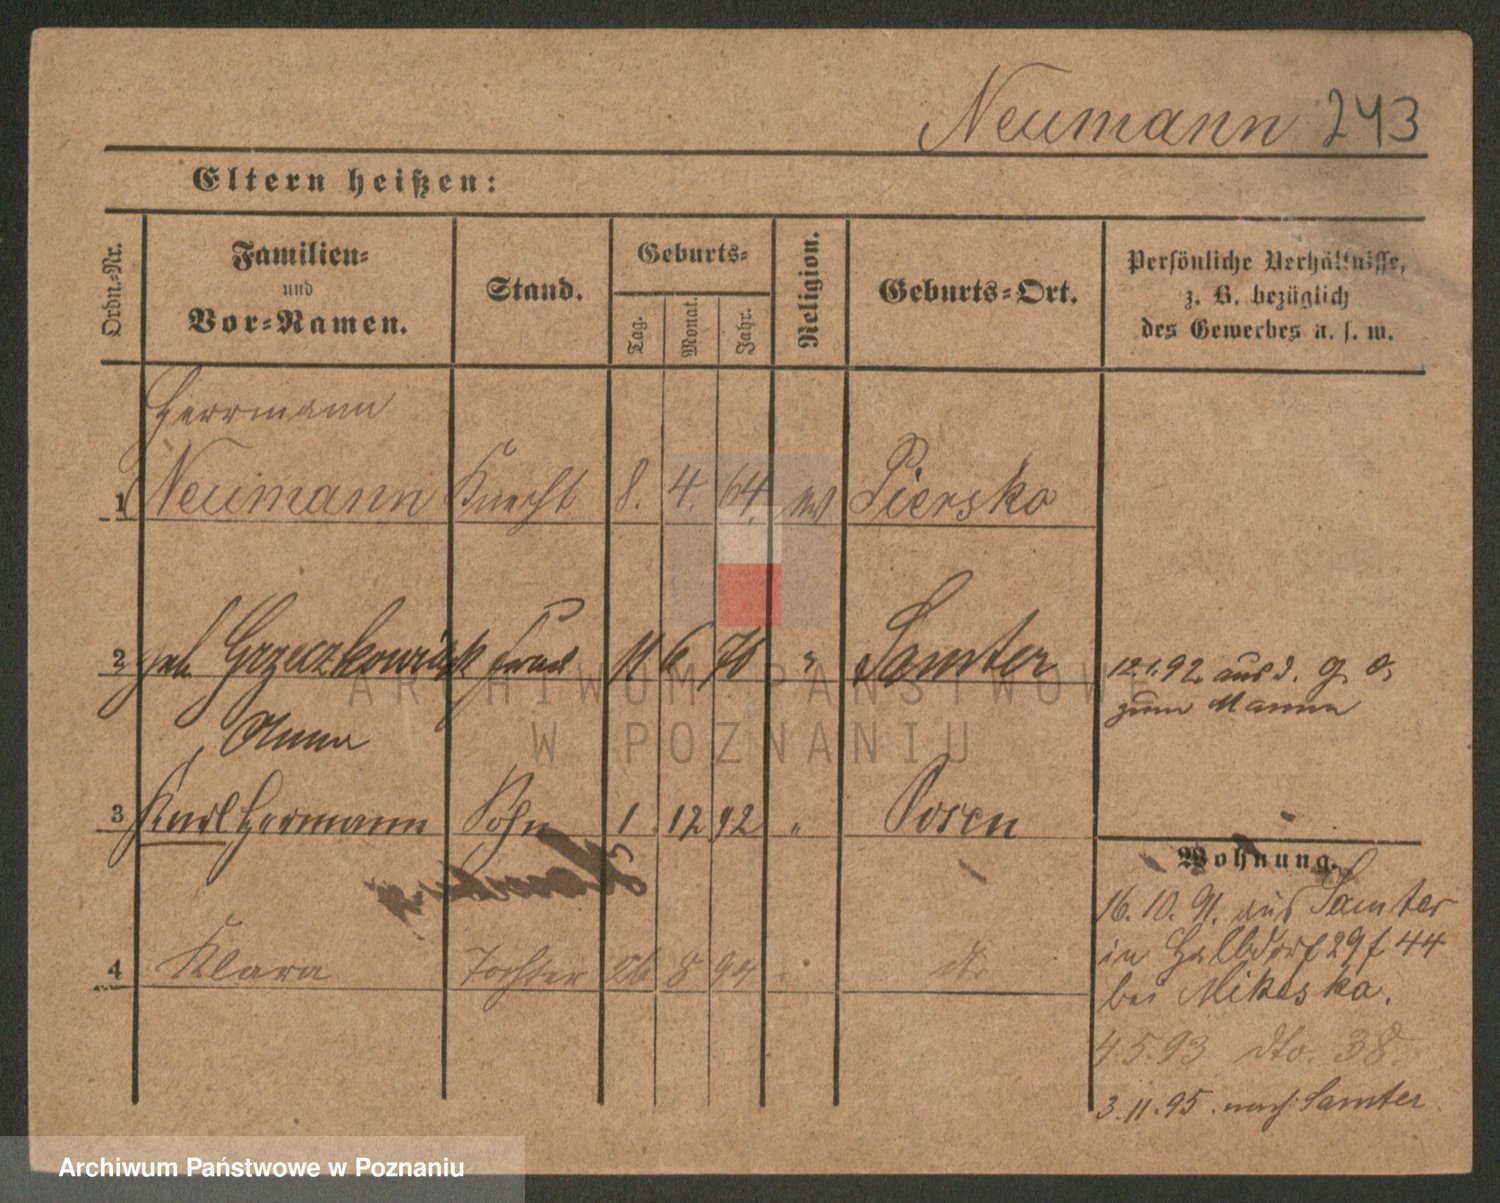 Neumann 243
Eltern heißen:
Ordn.-Nr.
Familien-
und
Vor-Namen.
Stand.
Geburts-
Tag.
Monat.
Jahr.
Religion.
Geburts-Ort.
Persönliche Verhältnisse,
z. B. bezüglich
des Gewerbes u. s. w.
Herrmann
1 Neumann Knecht 8. 4. 64. Piersko
2 geb. Grzeczkowiak Frau 11 6 70 " Samter
Anna
12.1.92 aus d. g. O.
zum Manne
3 Karl Hermann Sohn 1 12 92 " Posen
Wohnung.
16. 10. 91. aus Samter
in Halbdorf 29 f 44
bei Mikeska.
4 Klara Tochter 26 8 94 dto
4.5.93 dto. 38.
3.11.95. nach Samter
ARCHIWUM PAŃSTWOWE
W POZNANIU
Archiwum Państwowe w Poznaniu